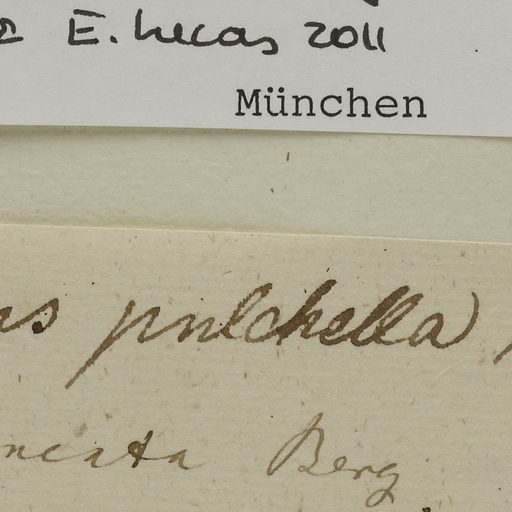 E. Lucas 2011
München
pulchella
Berg